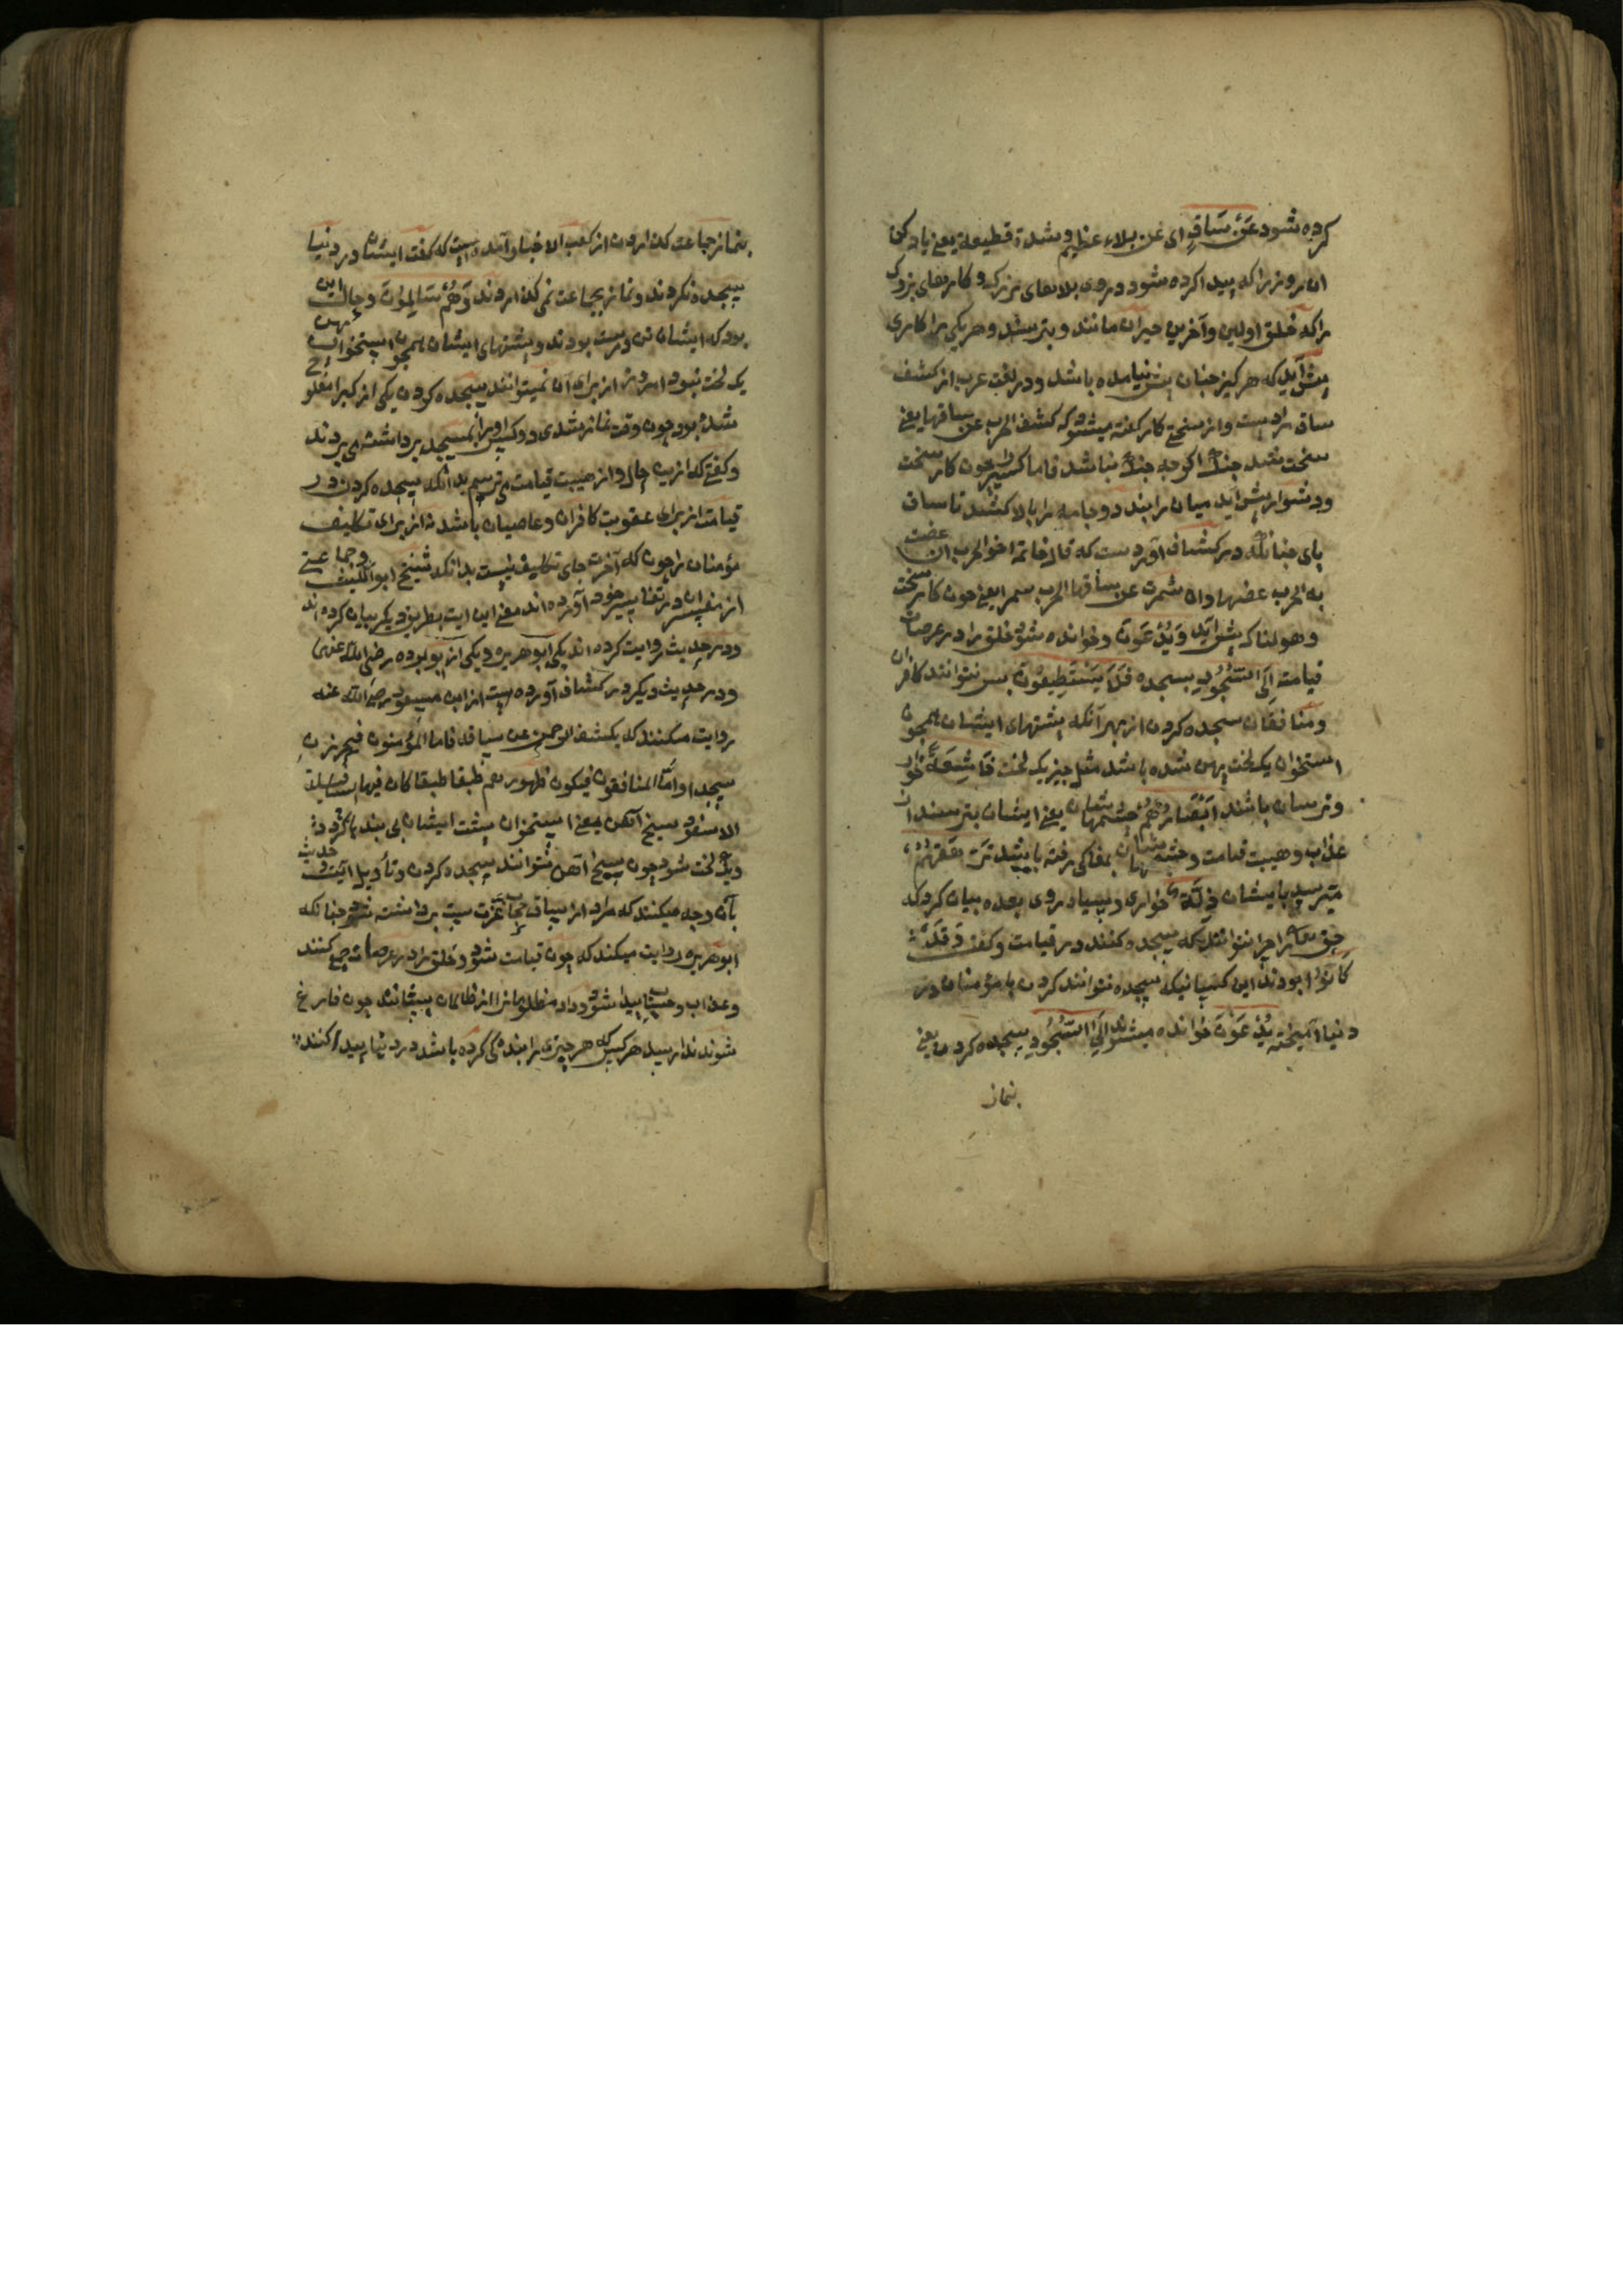 کرده شود عَنْ سَاقٍ ای عن بلاء عظیم و شدة قطیعة یعنی یاد کن
ان روز را که پیدا کرده شود دروی بلاهای بزرک و کارهای بزرک
را که خلق اولین و آخرین حیران مانند و بترسند و هر یکی را کاری
پیش آید که هرکز چنان پیش نیامده باشد و در لغت عرب از کشف
ساق مراد است و از سختی کار کفته میشود که کشف الحرب عن ساقها یعنی
سخت شد جنک اکرچه جنک نباشد فاما کسی را چون کار سخت
و دشوار پیش آید میان را بندد و جامه را بالا کشد تا ساق
پای چنانکه در کشاف آورد ست که قال حاتم اخو الحرب ان عضت
به الحرب عضها وان شمرت عن ساقها الحرب شمرا یعنی چون کار سخت
و هولناک پیش آید وَیُدْعَوْنَ و خوانده شود خلق را در عرصات
قیامت اِلَی السُّجُودِ بسجده فَلَا یَسْتَطِیعُونَ پس نتوانند کافران
و منافقان سجده کردن از بهر آنکه پشتهای ایشان همچون
استخوان یک لخت پهن شده باشد مثل چیز یک لخت خَاشِعَةً خوار
و ترسان باشند اَبْصَارُهُمْ چشمهاشان یعنی ایشان بترسند از
عذاب و هیبت قیامت و چشمهاشان بمغاکی رفته باشد تَرْهَقُهُمْ
میرسد با یشان ذِلَّةٌ خواری و سیاه روی بعده بیان کرد که
حق تعالی را چرا نتوانند که سجده کنند در قیامت و کفت وَقَدْ
کَانُوا بودند این کسانیکه سجده نتوانند کردن با مؤمنان در
دنیا آمیخته یُدْعَوْنَ خوانده میشدند اِلَی السُّجُودِ بسجده کردن یعنی
بنماز
بنماز جماعت کذاردن از کعب الاخبار آمده است که کفت ایشان در دنیا
سجده نکردند و نماز بجماعت نمی کذاردند وَهُمْ سَالِمُونَ و حال این
بود که ایشان تن درست بودند و پشتهای ایشان همچون استخوان پهن
یک لخت نبود امروز از برای آن نمیتوانند سجده کردن یکی از کبرا مفلوج
شده بود چون وقت نماز شدی دو کس او را بمسجد برداشته می بردند
و کفتی که ازین حال و از هیبت قیامت می ترسم بدانکه سجده کردن در
قیامت از برای عقوبت کافران و عاصیان باشد نه از برای تکلیف
مؤمنان را چون که آخرت جای تکلیف نیست بدانکه شیخ ابو اللیث و جماعتی
از مفسران در تفاسیر خود آورده اند معنی این ایت بطریق دیکر بیان کرده اند
و در حدیث روایت کرده اند یکی ابو هریره و یکی از ابو برده رضی الله عنهما
و در حدیث دیکر در کشاف آورده است از ابن مسعود رضی الله عنه
روایت میکنند که یکشف الرحمن عن ساقه فاما المؤمنون فیخرون
سجدا واما المنافقون فیکون ظهورهم طبقا طبقا کان فیها
السفود سیخ آهن یعنی استخوان پشت ایشان بی بندها کردد
و یک لخت شود چون سیخ آهن نتوانند سجده کردن و تأویل آیت و حدیث
بآن وجه میکنند که مراد از ساق حجاب عزت ست برداشته شود چنانکه
ابو هریره روایت میکند که چون قیامت شود و خلق را در عرصات جمع کنند
و عذاب و حساب پیدا شود و داد مظلومان را از ظالمان بستانند چون فارغ
شوند ندا رسد هر کس که هر چیزی را بنده کی کرده باشد در دنیا پیدا کنند